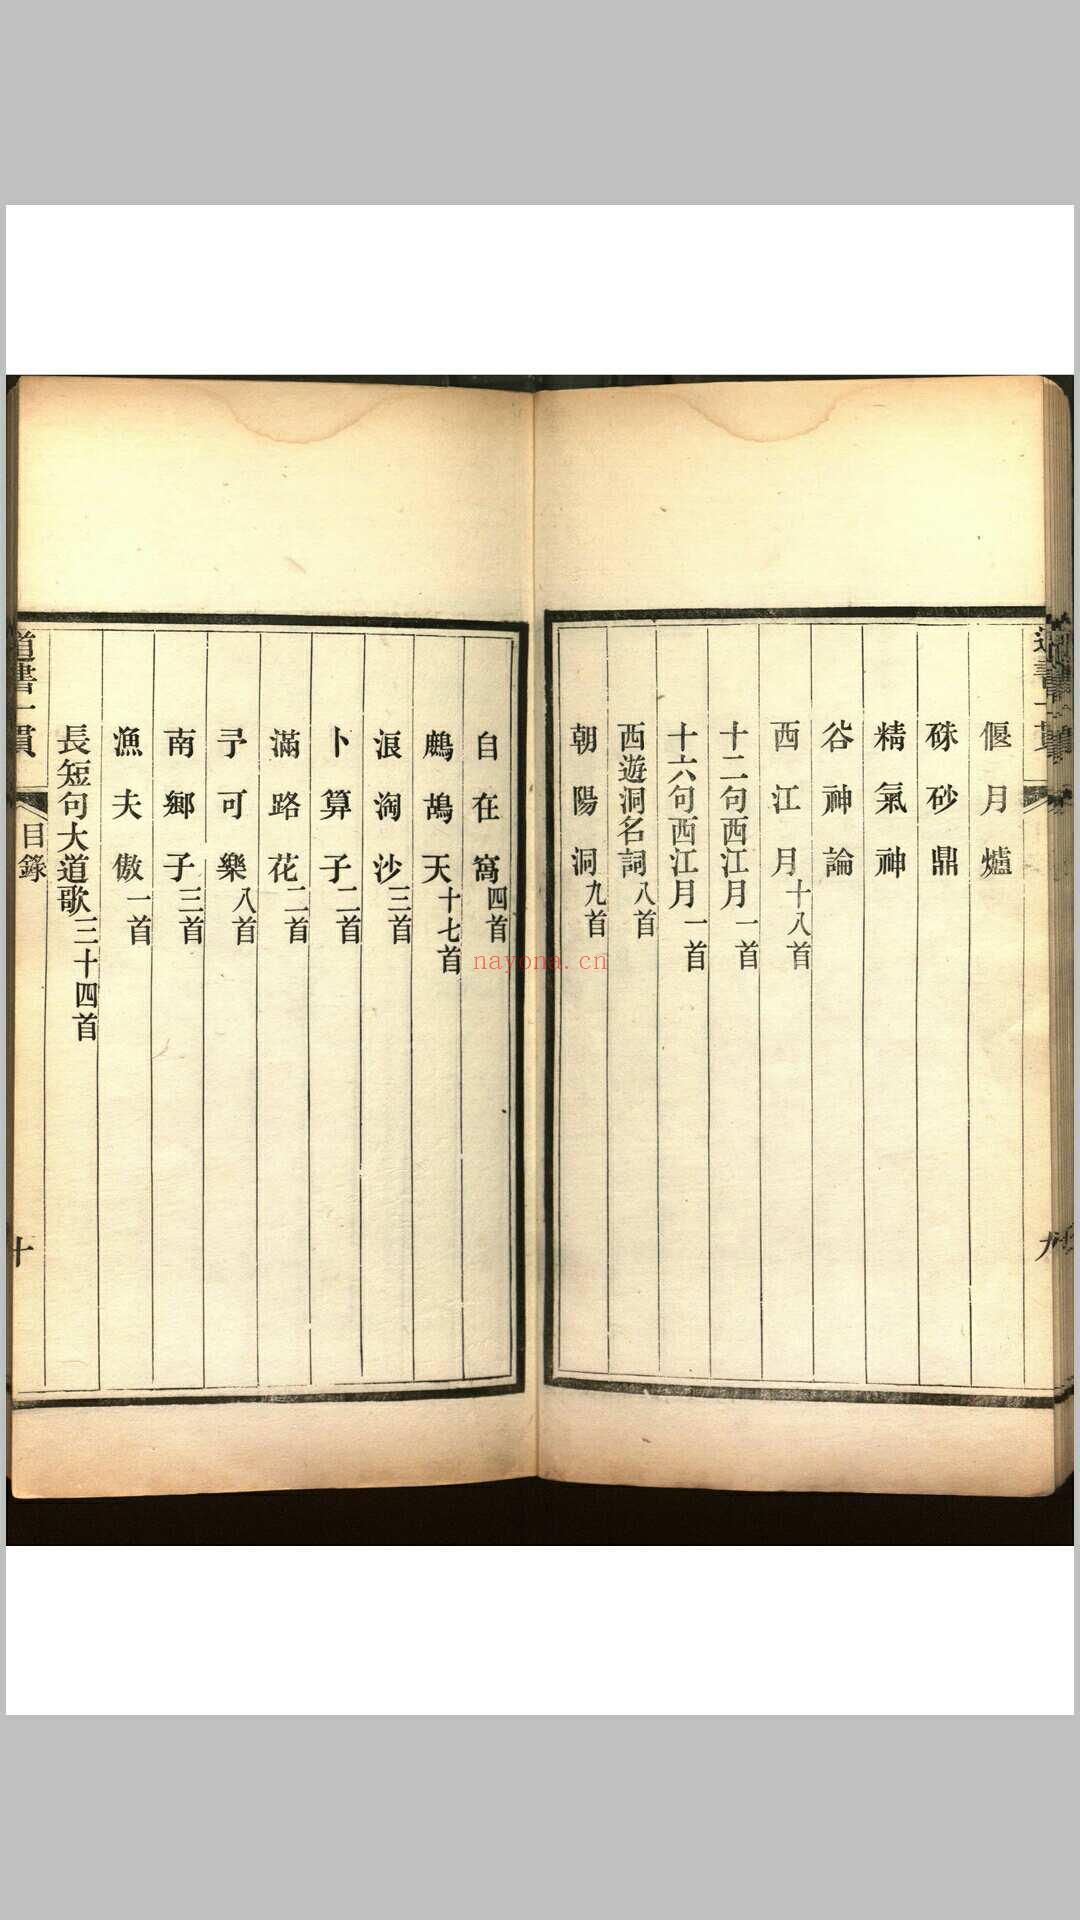 偃月爐
硃砂鼎
精氣神
谷神論
西江月十八首
十二句西江月一首
十六句西江月一首
西遊洞名詞八首
朝陽洞九首
自在窩四首
鷓鴣天十七首
浪淘沙三首
卜算子二首
滿路花二首
予可樂八首
南鄉子三首
漁夫傲一首
長短句大道歌三十四首
道書一貫
目錄
十
nayona.cn